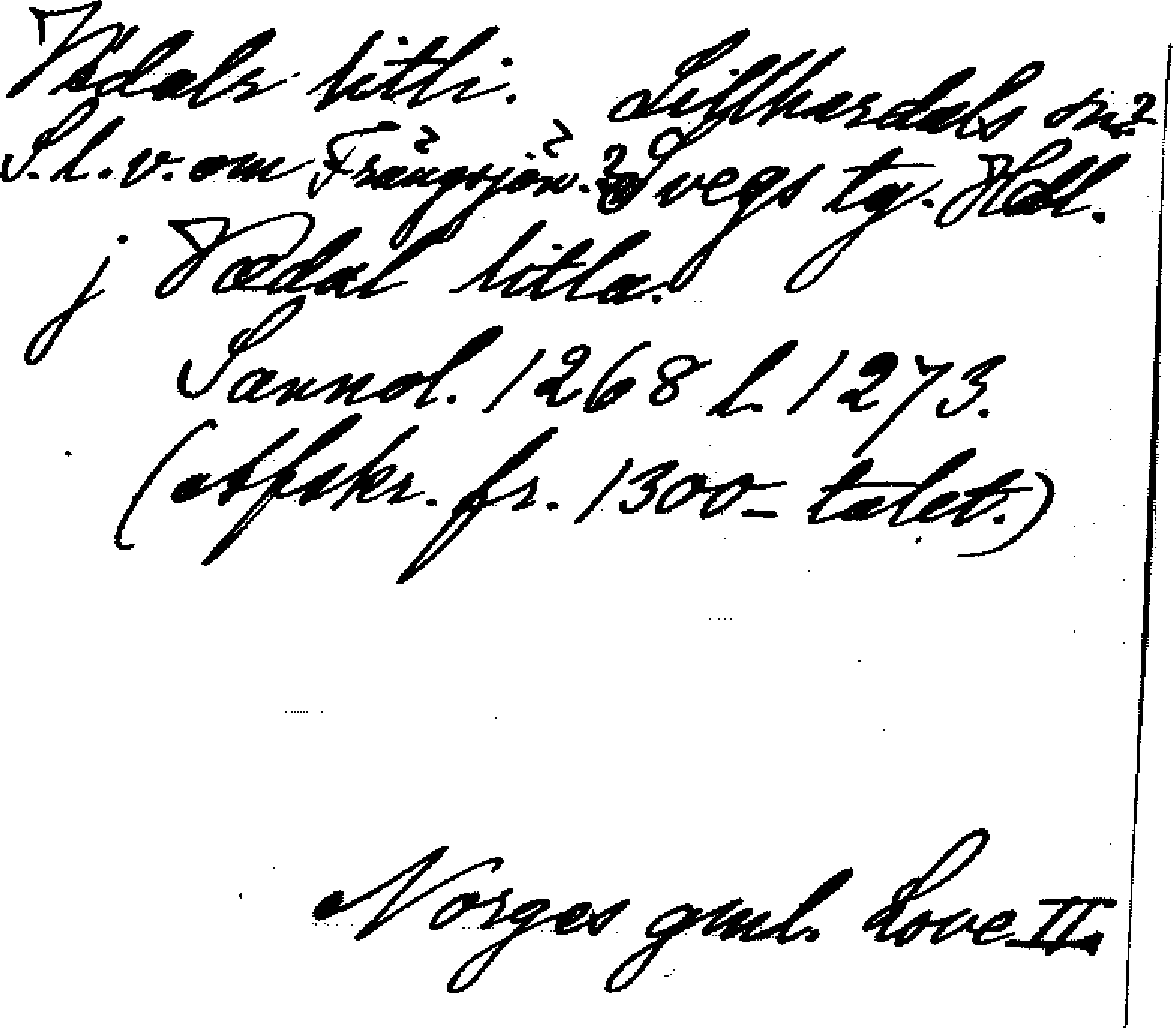 Vedalr litli. Lillherdals sn?
S.l.v. om Frångsjön.? Svegs tg. Hdl.
j Vædal litla.
Sannol. 1268 l. 1273.
(afskr. fr. 1300-talet.)
Norges gml. Love II.